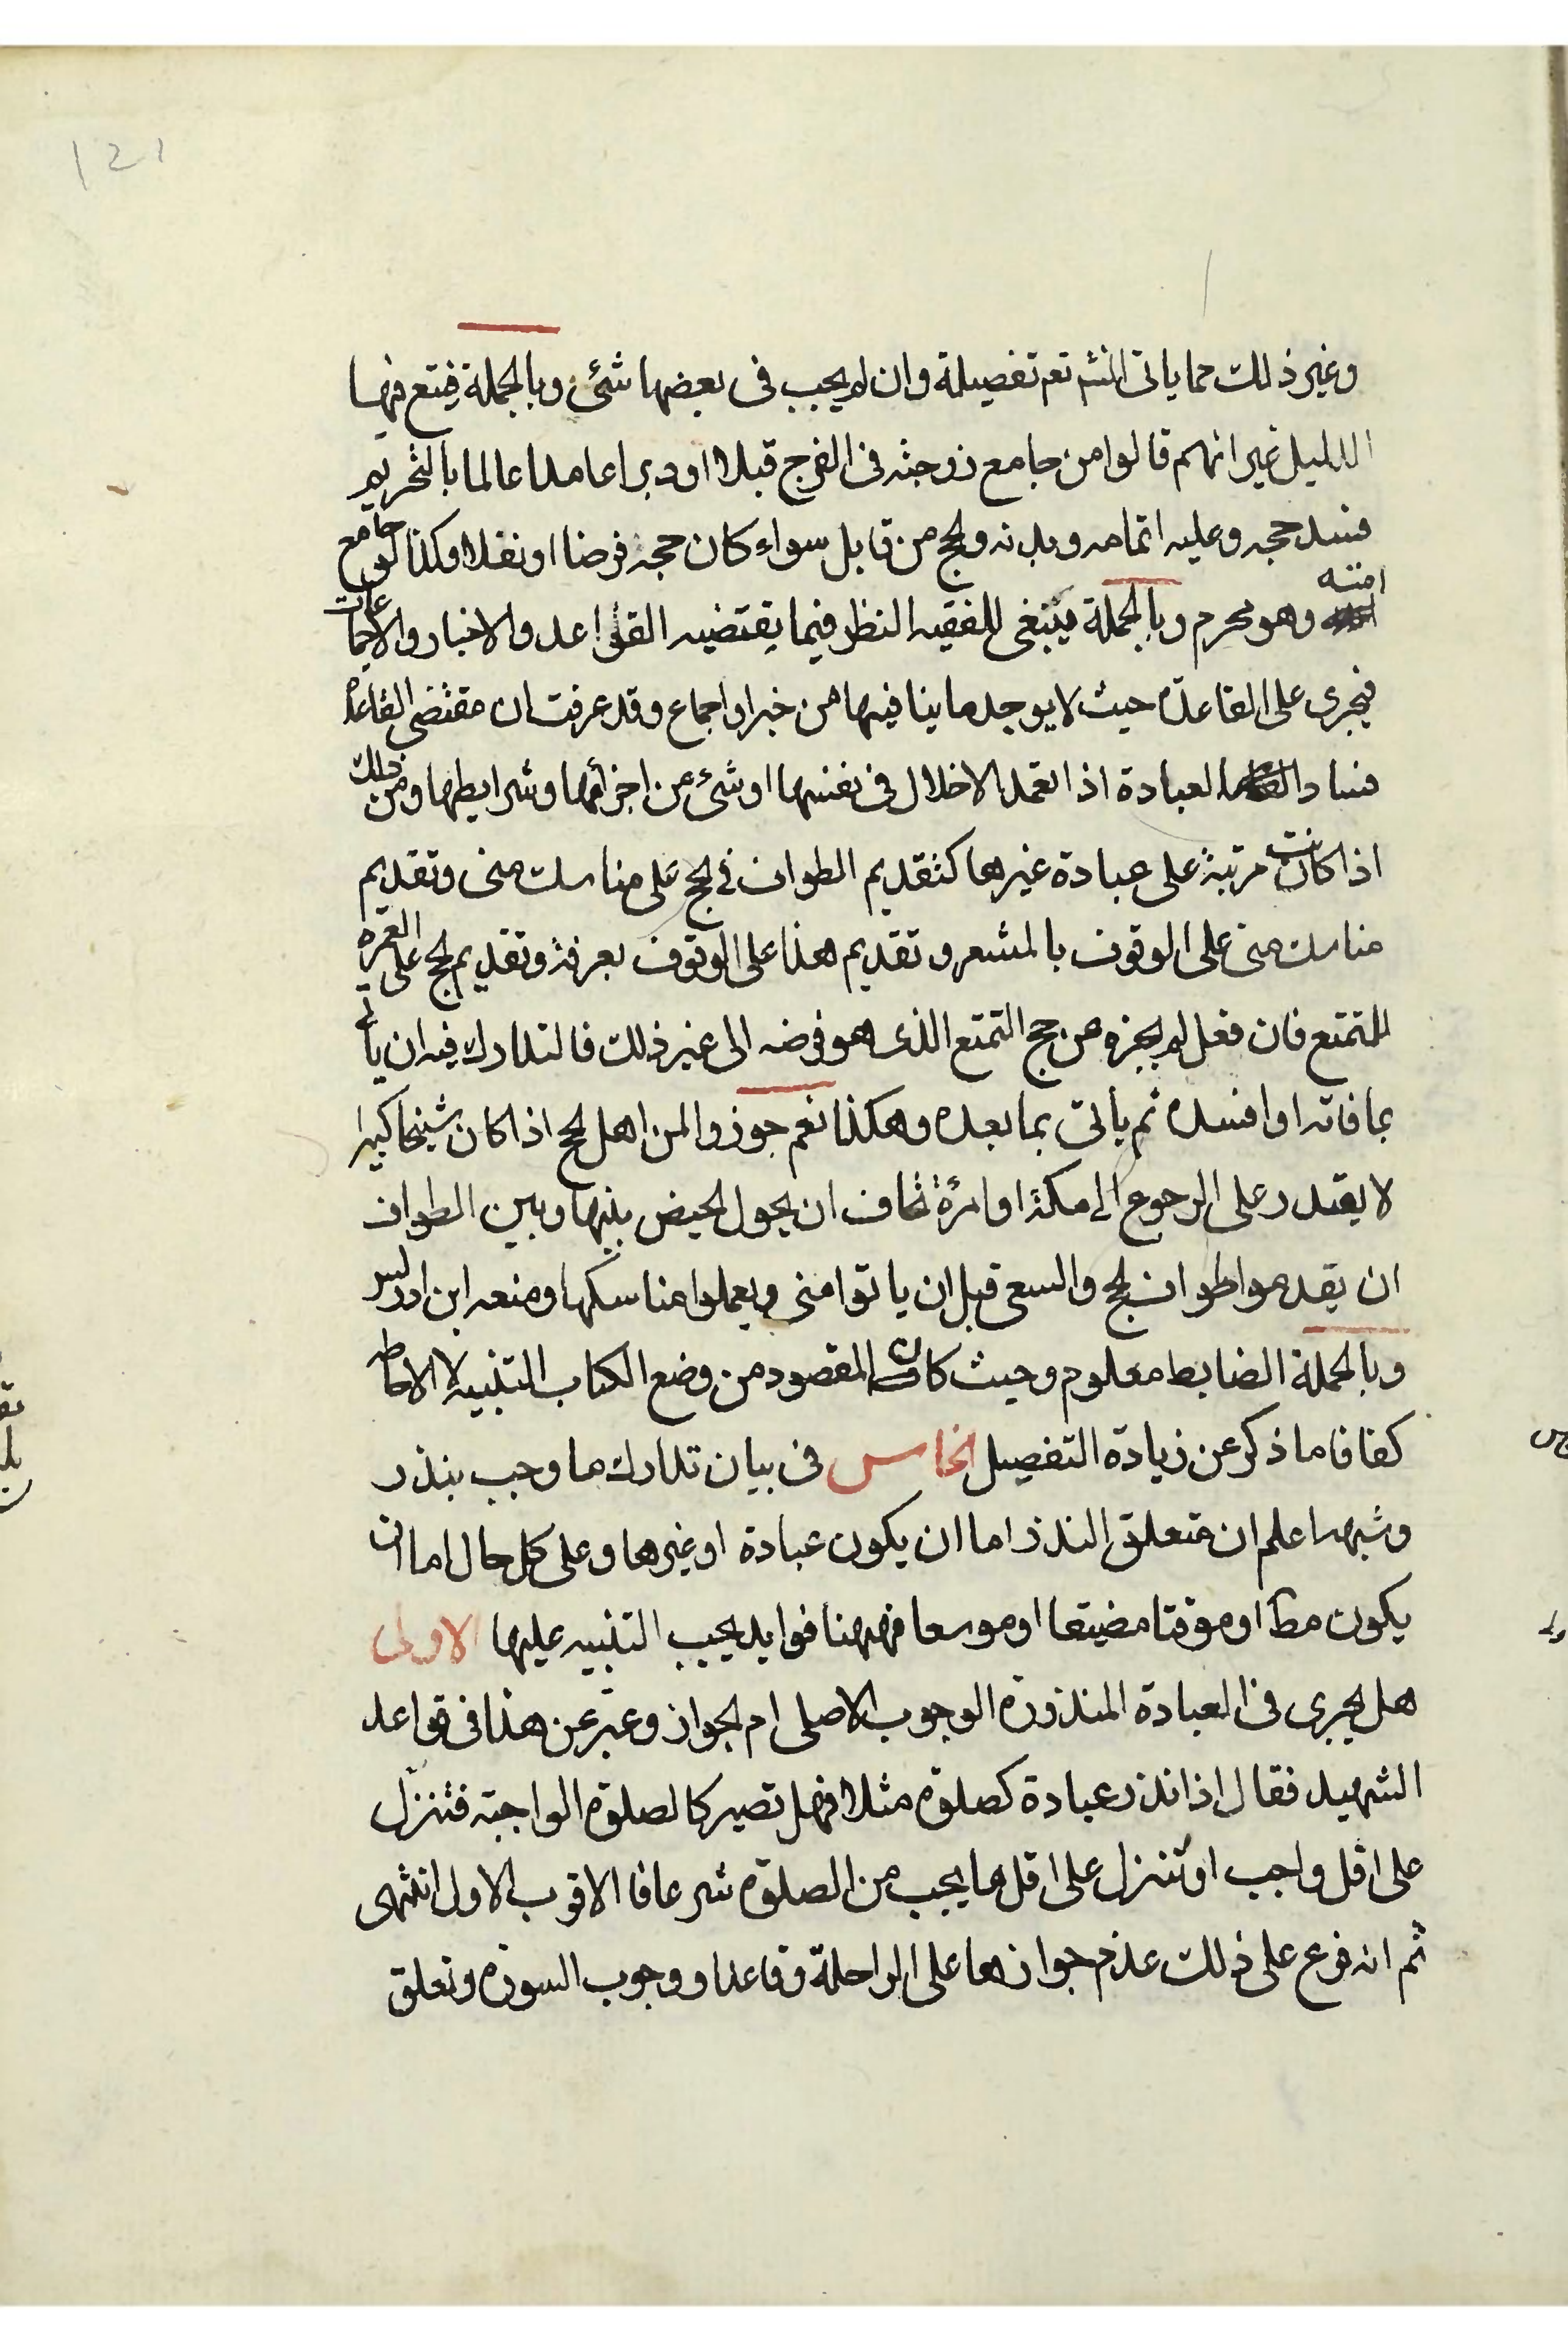 121
وغير ذلك مما ياتى انشم تع تفصيلة وان لم يجب فى بعضها شئ وبالجملة فيتبع فيها
الدليل غير انهم قالوا من جامع زوجته فى الفرج قبلا او دبرا عامدا عالما بالتحريم
فسد حجه وعليه اتمامه وبدنه والحج من قابل سواء كان حجه فرضا او نفلا وكذا لو جامع
امته وهو محرم وبالجملة فينبغى للفقيه النظر فيما يقتضيه القواعد والاخبار والاجماعات
فيجرى على القاعدة حيث لا يوجد ما ينافيها من خبر او اجماع وقد عرفت ان مقتضى القاعدة
فساد العبادة اذا تعمد الاخلال فى نفسها او شئ من اجزائها وشرايطها ومن ذلك
اذا كانت مرتبة على عبادة غيرها كتقديم الطواف فى الحج على مناسك منى وتقديم
مناسك منى على الوقوف بالمشعر وتقديم هذا على الوقوف بعرفة وتقديم الحج على العمرة
للمتمتع فان فعل لم يجزه عن حج التمتع الذى هو فرضه الى غير ذلك فالتدارك فيه ان ياتى
بما فاته او افسده ثم ياتى بما بعده وهكذا نعم جوزوا لمن اهل الحج اذا كان شيخا كبيرا
لا يقدر على الرجوع الى مكة او امرئة تخاف ان يحول الحيض بينها وبين الطواف
ان يقدموا طواف الحج والسعى قبل ان ياتوا منى ويعملوا مناسكها ومنعه ابن ادريس
وبالجملة الضابط معلوم وحيث كان المقصود من وضع الكتاب التنبيه لا الاحاطه
كفانا ما ذكر عن زيادة التفصيل الخامس فى بيان تدارك ما وجب بنذر
وشبهه اعلم ان متعلق النذر اما ان يكون عبادة او غيرها وعلى كل حال اما ان
يكون مط او موقتا مضيقا او موسعا فههنا فوايد يجب التنبيه عليها الاولى
هل يجرى فى العبادة المنذورة الوجوب الاصلى ام الجواز وعبر عن هذا فى قواعد
الشهيد فقال اذا نذر عبادة كصلوة مثلا فهل تصير كالصلوة الواجبة فتنزل
على اقل واجب او تنزل على اقل ما يجب من الصلوة شرعا فا الاقرب الاول انتهى
ثم انه فرع على ذلك عدم جوازها على الراحلة وقاعدا ووجوب السورة وتعلق